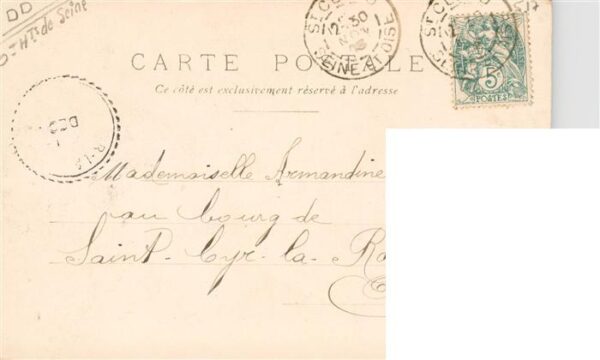 DD
Hts de Seine
17
ST CLOUD
30
SEINE-ET-OISE
ST CLOUD
5
POSTES
CARTE POSTALE
Ce côté est exclusivement réservé à l'adresse
DEC
Mademoiselle Armandine
au bourg de
Saint-Cyr-la-Ro